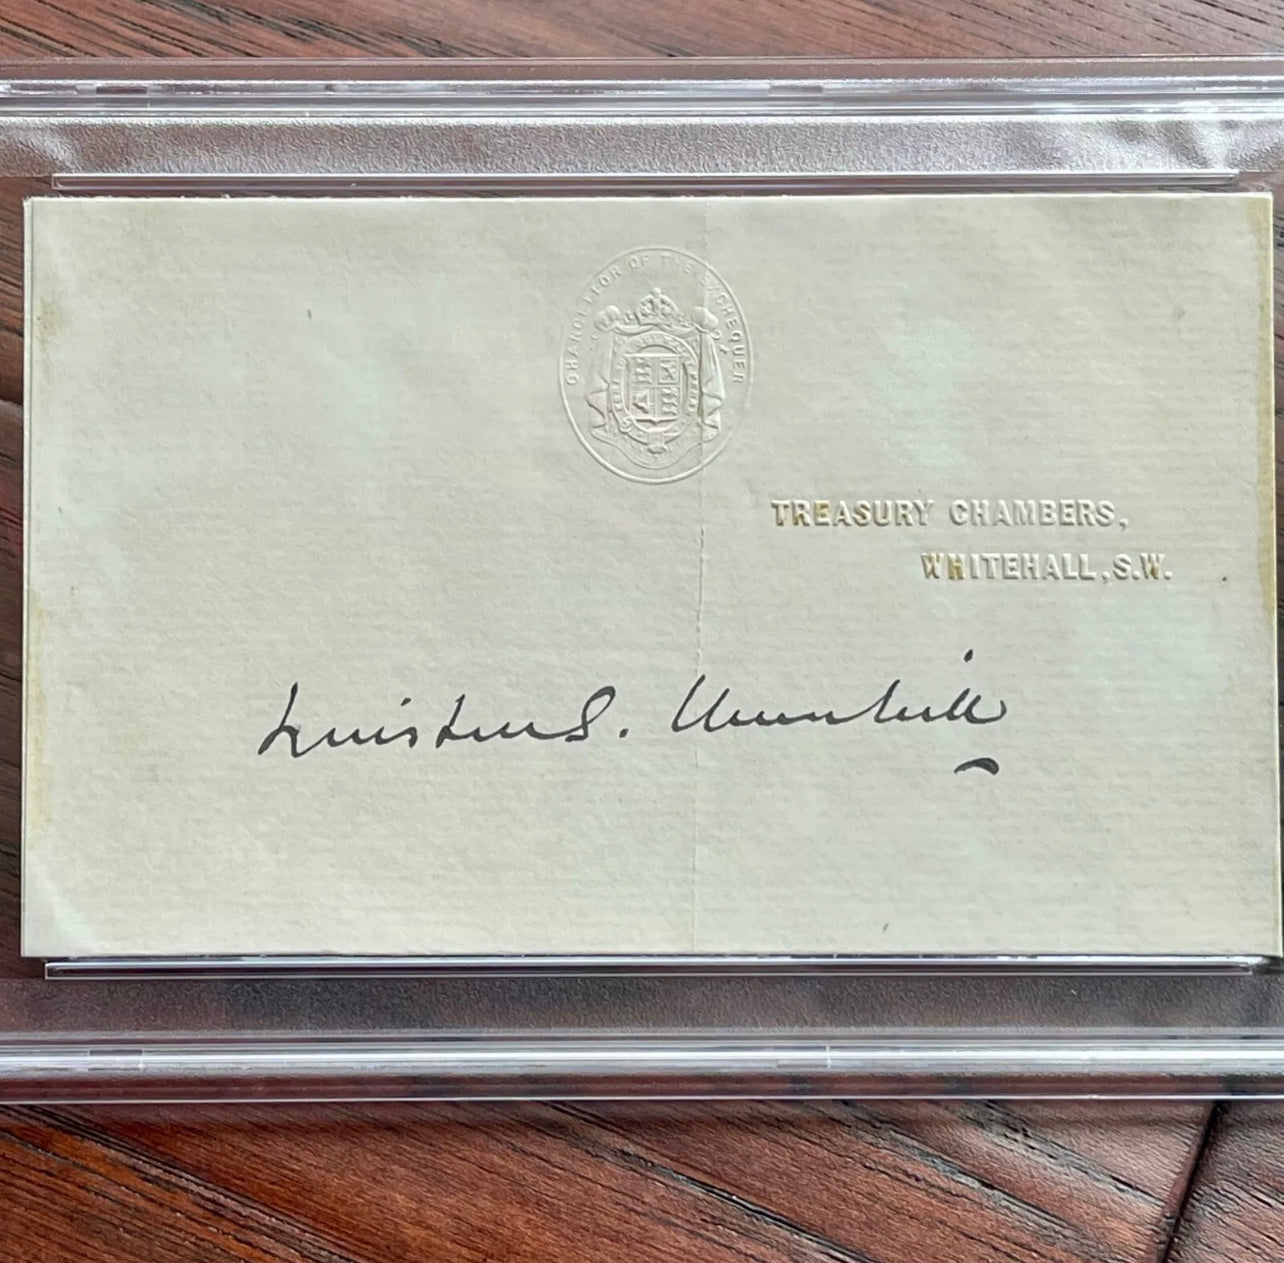 CHANCELLOR OF THE EXCHEQUER
TREASURY CHAMBERS,
WHITEHALL, S.W.
Winston S. Churchill